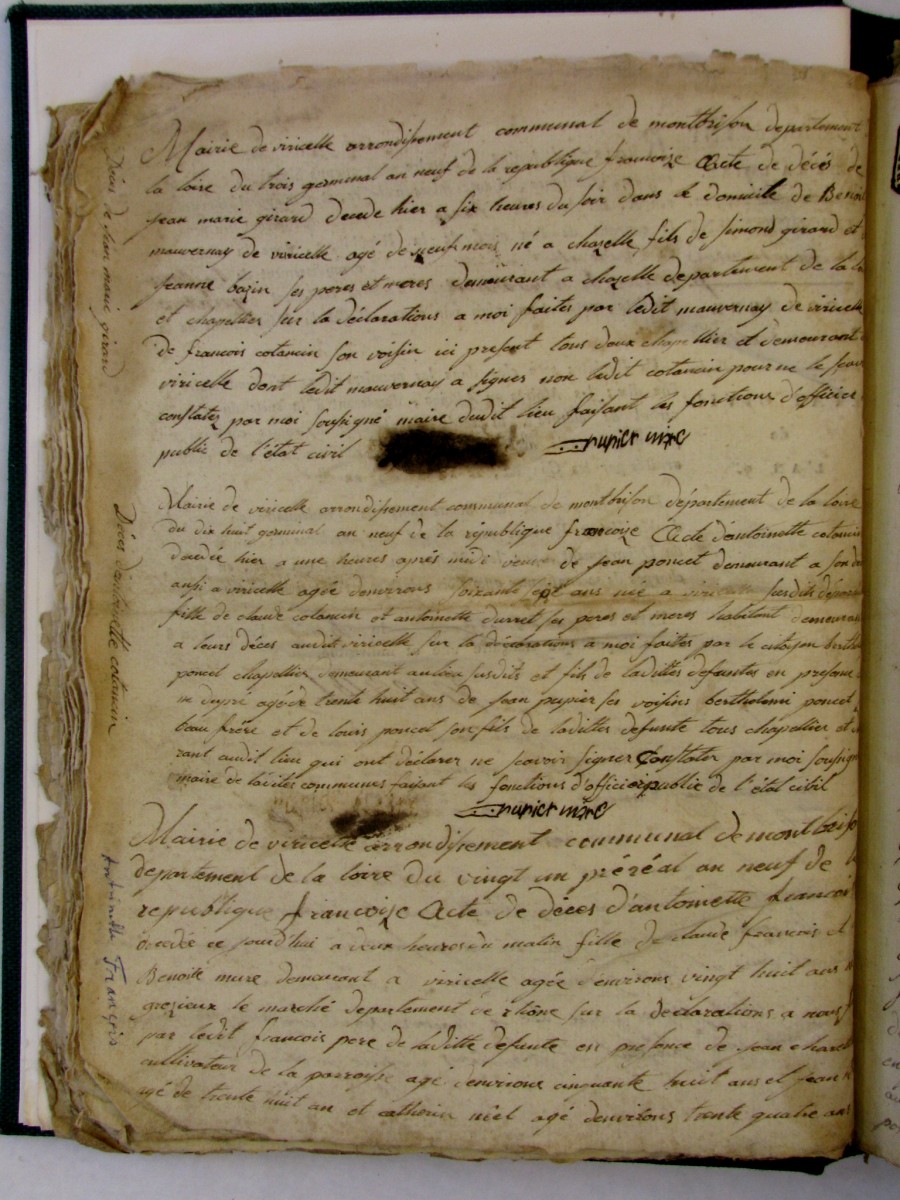 Décès de Jean marie girard
Mairie de viricelle arrondissement communal de montbrison departement
la loire du trois germinal an neuf de la republique françoize Acte de décés de
Jean marie girard decede hier a six heures du soir dans le domicile de Benoi
mauvernay de viricelle agé de neuf mois né a chazelle fils de simond girard et
Jeanne bazin ses peres et meres demeurant a chazelle departement de la
et chapellier sur la déclarations a moi faites par ledit mauvernay de viricelle
de francois cotancin son voisin ici present tous deux chapellier et demeurant
viricelle dont ledit mauvernay a signes non ledit cotancin pour ne le scavoir
constatez par moi sousigné maire dudit lieu faisant les fonctions d'officier
public de l'état civil
mire
Décès d'antoinette cotancin
Mairie de viricelle arrondissement communal de montbrison département de la loire
du dix huit germinal an neuf de la république françoize Acte d'antoinette cotancin
décédée hier a une heures après midi veuve de Jean poncet demeurant a son
ausi a viricelle agée denvirons soixante sept ans née a viricelle susdits
fille de claude cotancin et antoinette durret ses peres et meres habitant demeurant
a leurs déces audit viricelle sur la déclarations a moi faites par le citoyen
poncet chapellier demeurant au lieu susdits et fils de laditte defuntes en presence
agé de trente huit ans de Jean pupier ses voisins bertholemi poncet
beau frére et de louis poncet son fils de laditte defunte tous chapellier et
rant audit lieu qui ont déclarer ne scavoir signer Constater par moi sousigné
maire de la dites communes faisant les fonctions d'officier public de l'état citil
mire
Antoinette François
Mairie de viricelle arrondissement communal de montbrison
département de la loire du vingt un préréal an neuf de
republique françoize Acte de déces d'antoinette francois
decedée ce jourd'hui a deux heures du matin fille de claude francois et
Benoite mure demeurant a viricelle agée d'environs vingt huit ans
grezieux le marché département de rhône sur la declarations a nous
par ledit francois pere de laditte defunte en presence de Jean
cultivateur de la parroisse agé d'environs cinquante huit ans et Jean
agé de trente huit an et catherin niel agé d'environs trente quatre ans